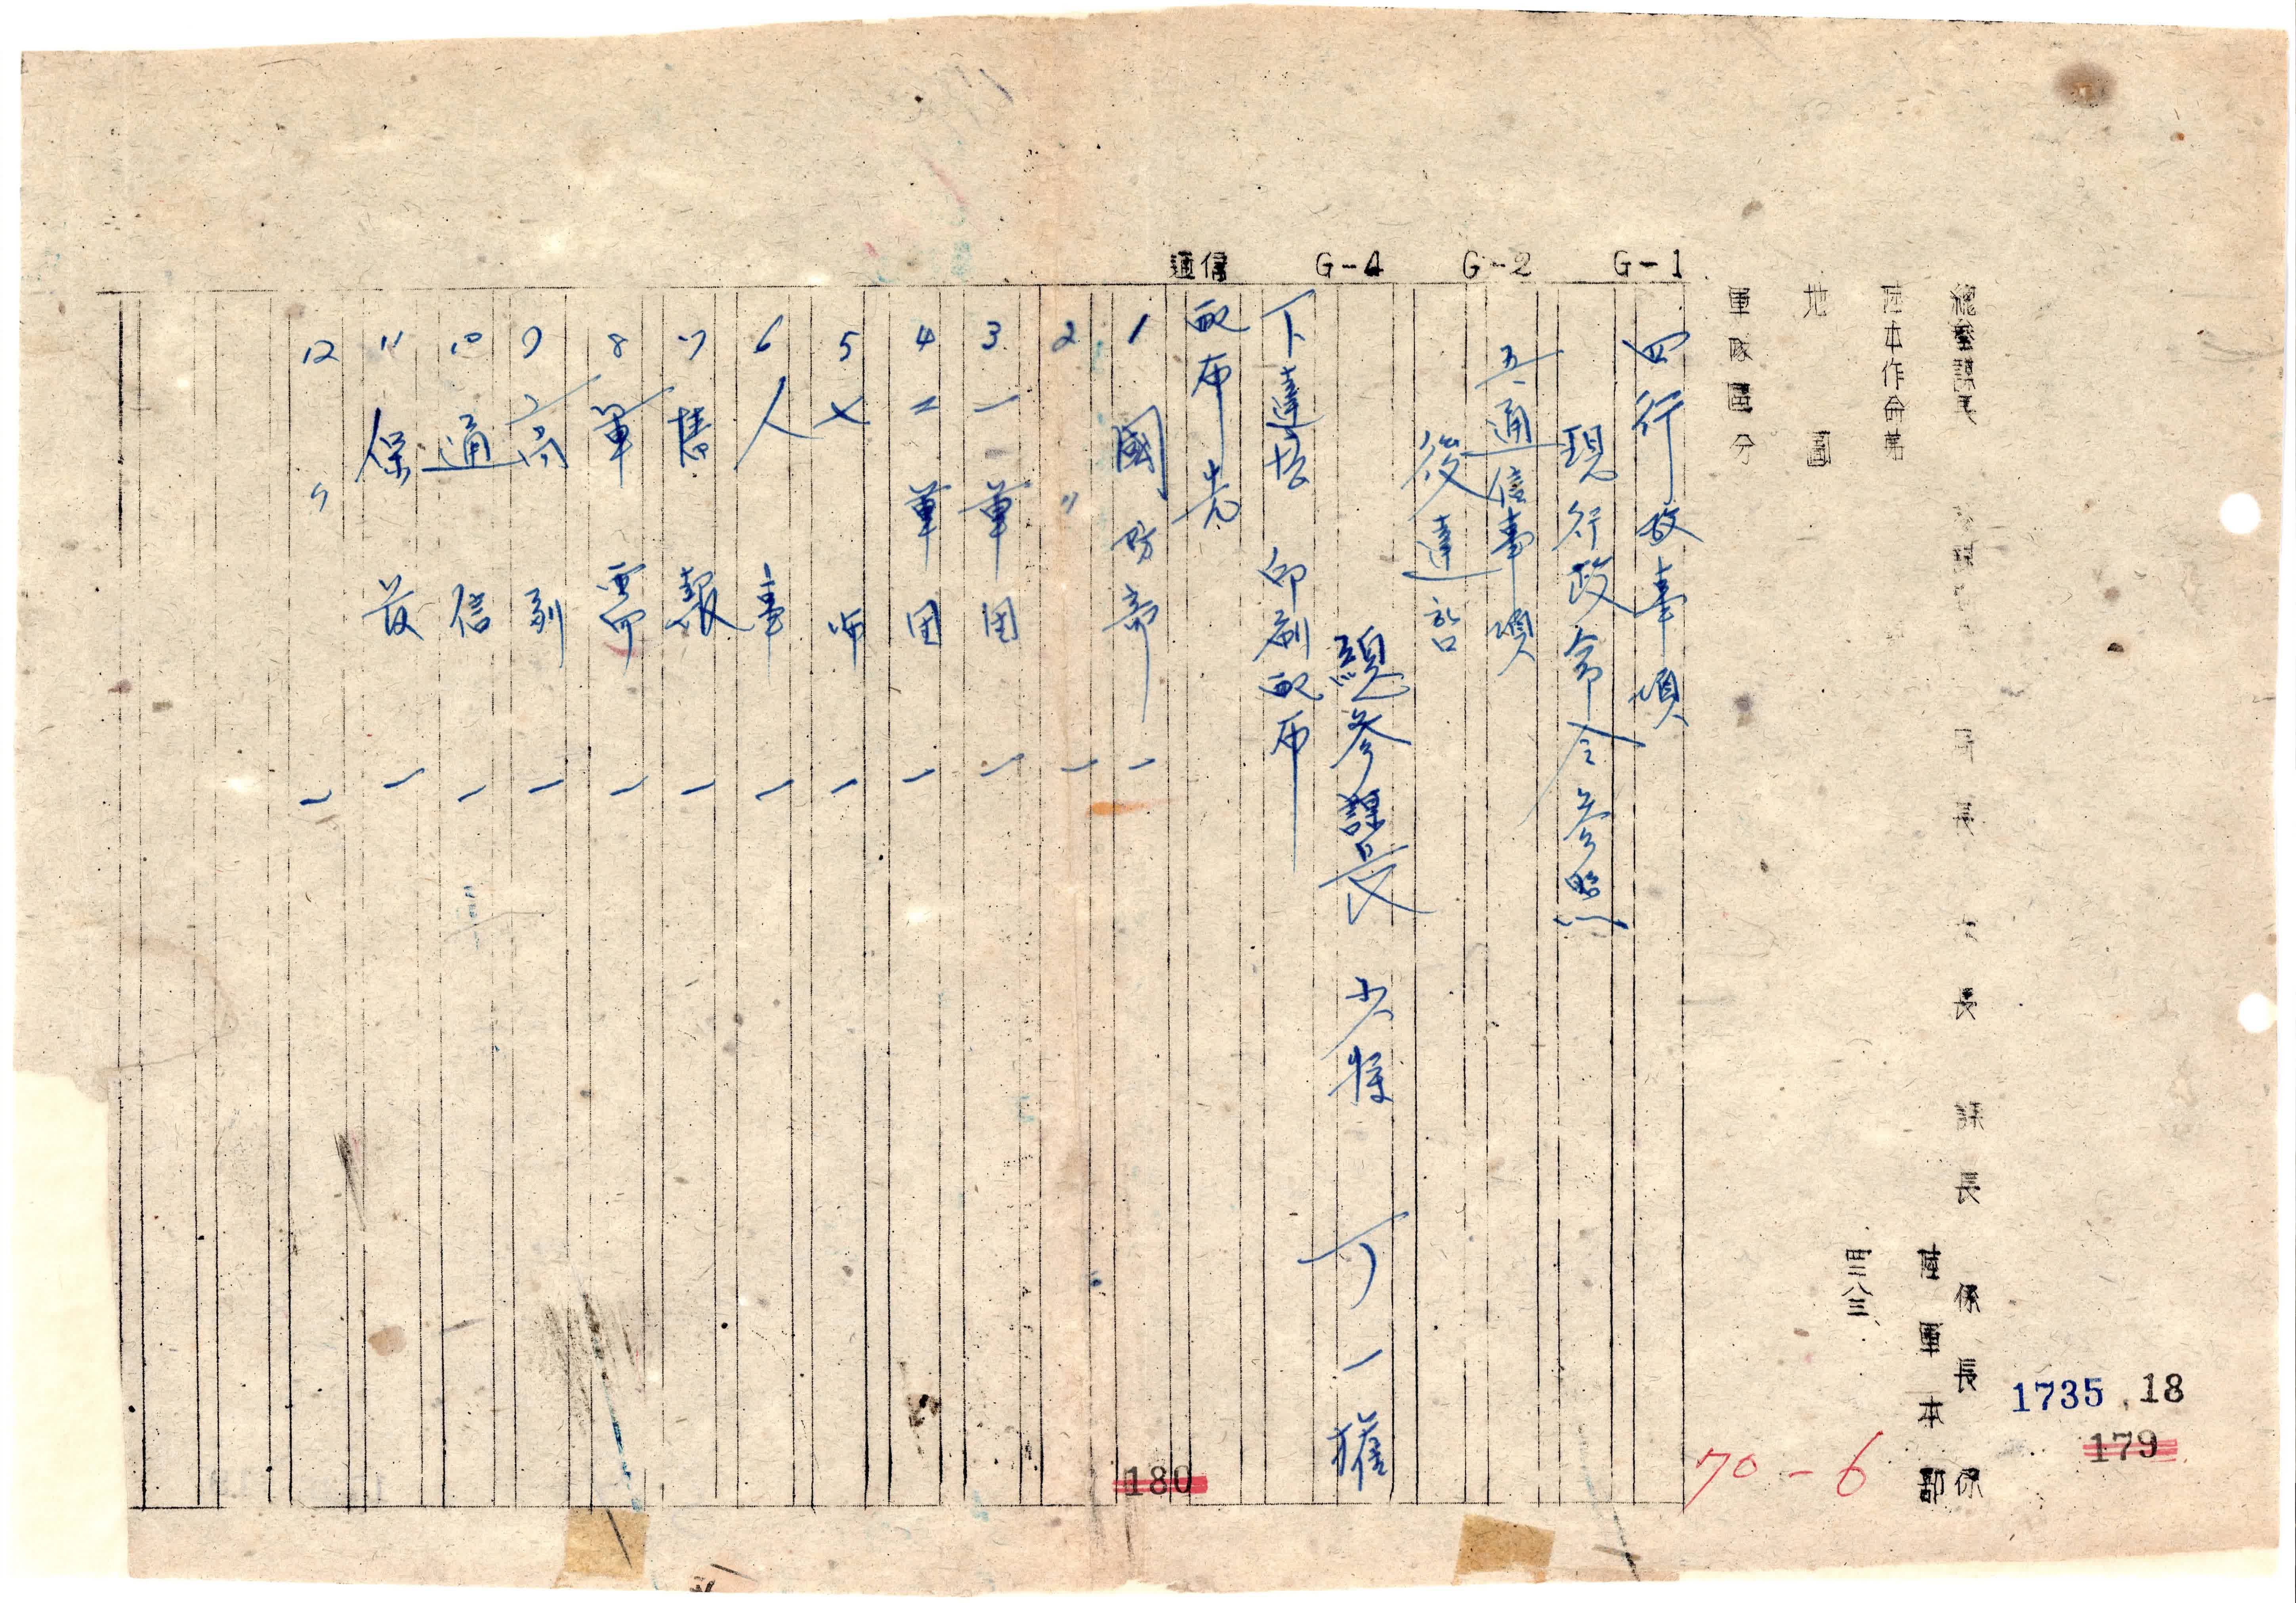 總參謀長
局長
次長
課長
係長
係
陸本作命第
陸軍本部
四二八三
地圖
軍隊區分
G-1
G-2
G-4
通信
四 行政事項
現行政命令參照
五、通信事項
後達함
總參謀長 少將 丁一權
下達法 印刷配布
配布先
1 國防部 一
2 〃 一
3 一軍団 一
4 二軍団 一
5 七師 一
6 人事 一
7 情報 一
8 軍需 一
9 高副 一
10 通信 一
11 保 一
12 〃 一
1735
18
179
180
70-6